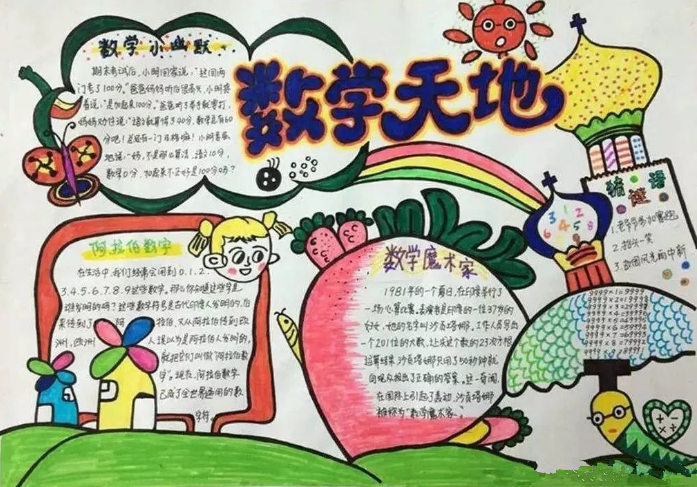 数学天地
数学小幽默
期末考试后,小明回家说:"这回两
门考了100分。"爸爸妈妈听后很高兴,小明接
着说:"是加起来100分。"爸爸听了要打,
分吧!总还有一门及格嘛!小明
数学0分,加起来不正好是100分吗?
阿拉伯数字
在生活中,我们经常会用到0.1.2.
3.4.5.6.7.8.9这些数字。那么你知道这些数字是
谁发明的吗?这些数字符号是古代印度人发明的,后
来传到了阿拉伯,又从阿拉伯传到欧
洲,欧洲人误以为是阿拉伯人发明的,
就把它们叫做"阿拉伯数
字"。现在,阿拉伯数字
已成了全世界通用的数
字符
数学魔术家
1981年的一个夏日,在印度举行了
一场心算比赛。表演者是印度的一位37岁的
妇女,她的名字叫沙贡塔娜。工作人员写出
一个201位的大数,让求这个数的23次方根
运算结果,沙贡塔娜只用了50秒钟就
向观众报出了正确的答案。这一奇闻,
在国际上引起了轰动,沙贡塔娜
被称为"数学魔术家"。
猜谜语
1.老爷爷参加赛跑
2.抬头一笑
3.故国风光雨中新
3 1 2
6 4 5 8